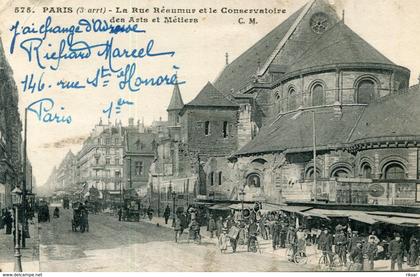 578. PARIS (3e arrt) - La Rue Réaumur et le Conservatoire
des Arts et Métiers C. M.
j'ai changé d'adresse
Richard Marcel
146, rue St Honoré
Paris 1er